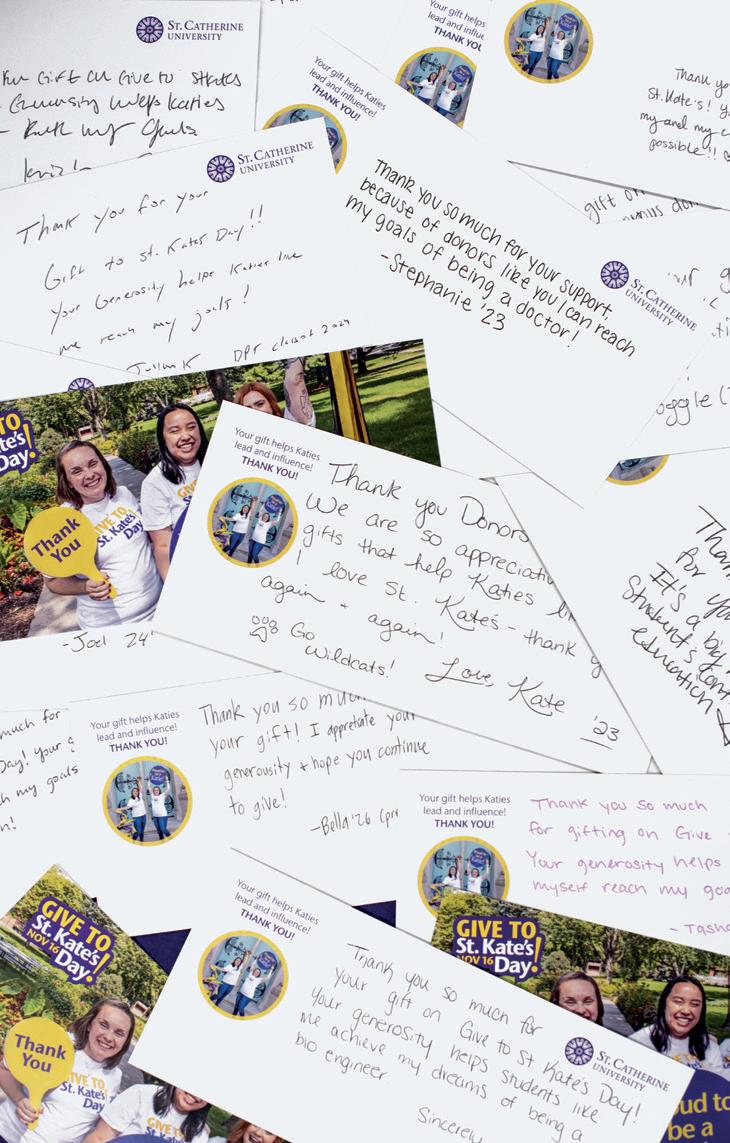 ST. CATHERINE
UNIVERSITY
Gift on Give to St Kates
Generosity helps Katies
my goals
Your gift helps Katies
lead and influence!
THANK YOU!
lead and influ
THANK YOU
Thank yo
St. Kate's! Y
my and my c
possible!!
gift on
ST. CATHERINE
UNIVERSITY
Thank you for your
Gift to St. Kates Day!!
your Generosity helps Katies live
me reach my goals!
DPT class of 2024
Thank you so much for your support,
because of donors like you I can reach
my goals of being a doctor!
-Stephanie '23
ST. CATHERINE
UNIVERSITY
oggle
TO
Kate's
Day!
Thank
You
GIVE TO
St. Kate's
Day!
-Joel 24'
Your gift helps Katies
lead and influence!
THANK YOU!
Thank you Donors
We are so appreciativ
gifts that help Katies li
I love St. Kate's - thank y
again + again!
Go
Wildcats!
Love, Kate
'23
Than
for you
It's a big
Student's cont
education
much for
Day! your g
h my goals
n!
Your gift helps Katies
lead and influence!
THANK YOU!
Thank you so much
your gift! I appretate your
generousity + hope you continue
to give!
-Bella '26
Your gift helps Katies
lead and influence!
THANK YOU!
Thank you so much
for gifting on Give
Your generosity helps
myself reach my goa
-Tasha
GIVE TO
St. Kate's
NOV 16 Day!
Thank
You
GIVE TO
St. Kate's
Day!
Your gift helps Katies
lead and influence!
THANK YOU!
Thank you so much for
your gift on Give to St Kate's Day!
Your generosity helps students like
me achieve my dreams of being a
bio engineer
Sincerely
ST. CATHERINE
UNIVERSITY
GIVE TO
St. Kate's
NOV 16 Day!
oud to
be a